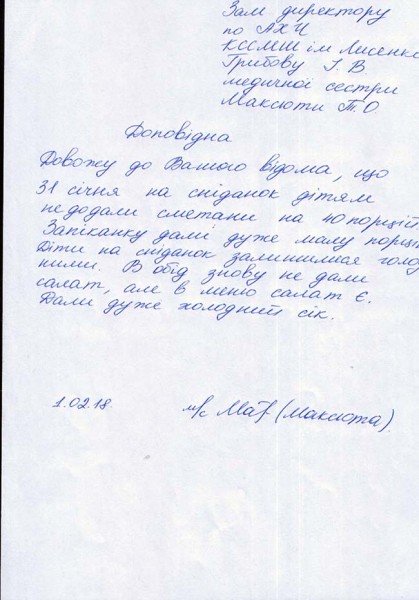 Зам директору
по АХЧ
КССМШ ім Лисенка
Грибову І В
медичної сестри
Максюти Т.О.
Доповідна
Довожу до Вашого відома, що
31 січня на сніданок дітям
не додали сметани на 40 порцій
Запіканку дали дуже малу порцію
Діти на сніданок залишилися голо
ними. В обід знову не дали
салат, але в меню салат є.
Дали дуже холодний сік.
1.02.18 м/с (Максюта)